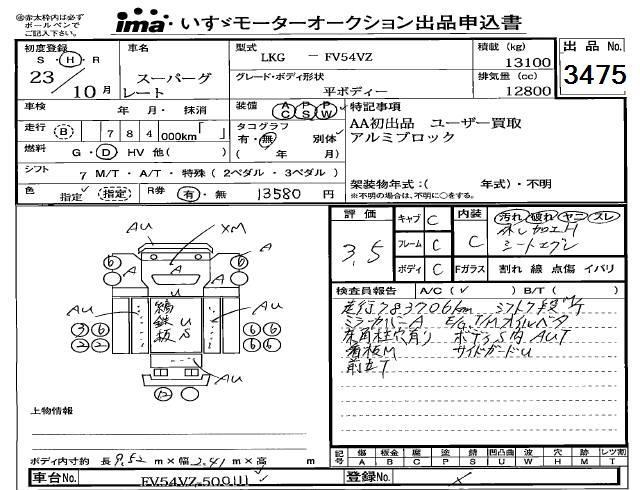 ※赤太枠内は必ず
ボールペンで
ご記入下さい。
ima いすゞモーターオークション出品申込書
初度登録
S・H・R
23 / 10 月
車名
スーパーグレート
型式
LKG － FV54VZ
グレード・ボディ形状
平ボディー
積載(kg)
13100
排気量(cc)
12800
出品No.
3475
車検 年 月・ 抹消
装備 A C P S P W
特記事項
AA初出品 ユーザー買取
アルミブロック
走行 (B) 7 8 4 000km「 」
タコグラフ
有・無 別体
( 年 月)
燃料 G・D HV 他( )
シフト 7 M/T・A/T・特殊(2ペダル・3ペダル)
架装物年式:( 年式)・不明
※不明の場合は、不明に○をする。
色 指定 指定 R券 有・無 13580 円
評価
3.5
キャブ C
フレーム C
ボディ C
内装 C
汚れ 破れ ヤニ スレ
Fガラス 割れ 線 点傷 イバリ
AU
XM
A
A
A
6
6
AU
縞鉄板
U
S
U
AU
3 6
2 2
6 6
6 6
AU
12
検査員報告 A/C(✓) B/T( )
走行783706km シフト7段M/T
ミラーカバーA E/G,T/Mオイルベタ
床角柱穴有り ボデ内S AUT
看板M サイドガードU
前立T
上物情報
ボディ内寸約 長 9.52 m×幅 2.41 m×高 m
記号 傷 A 板金 B 腐 C 塗 P 錆 S 凹凸曲 U 波 W 穴 H 跡 M レンズ割 T
車台No. FV54VZ-500111
登録No.